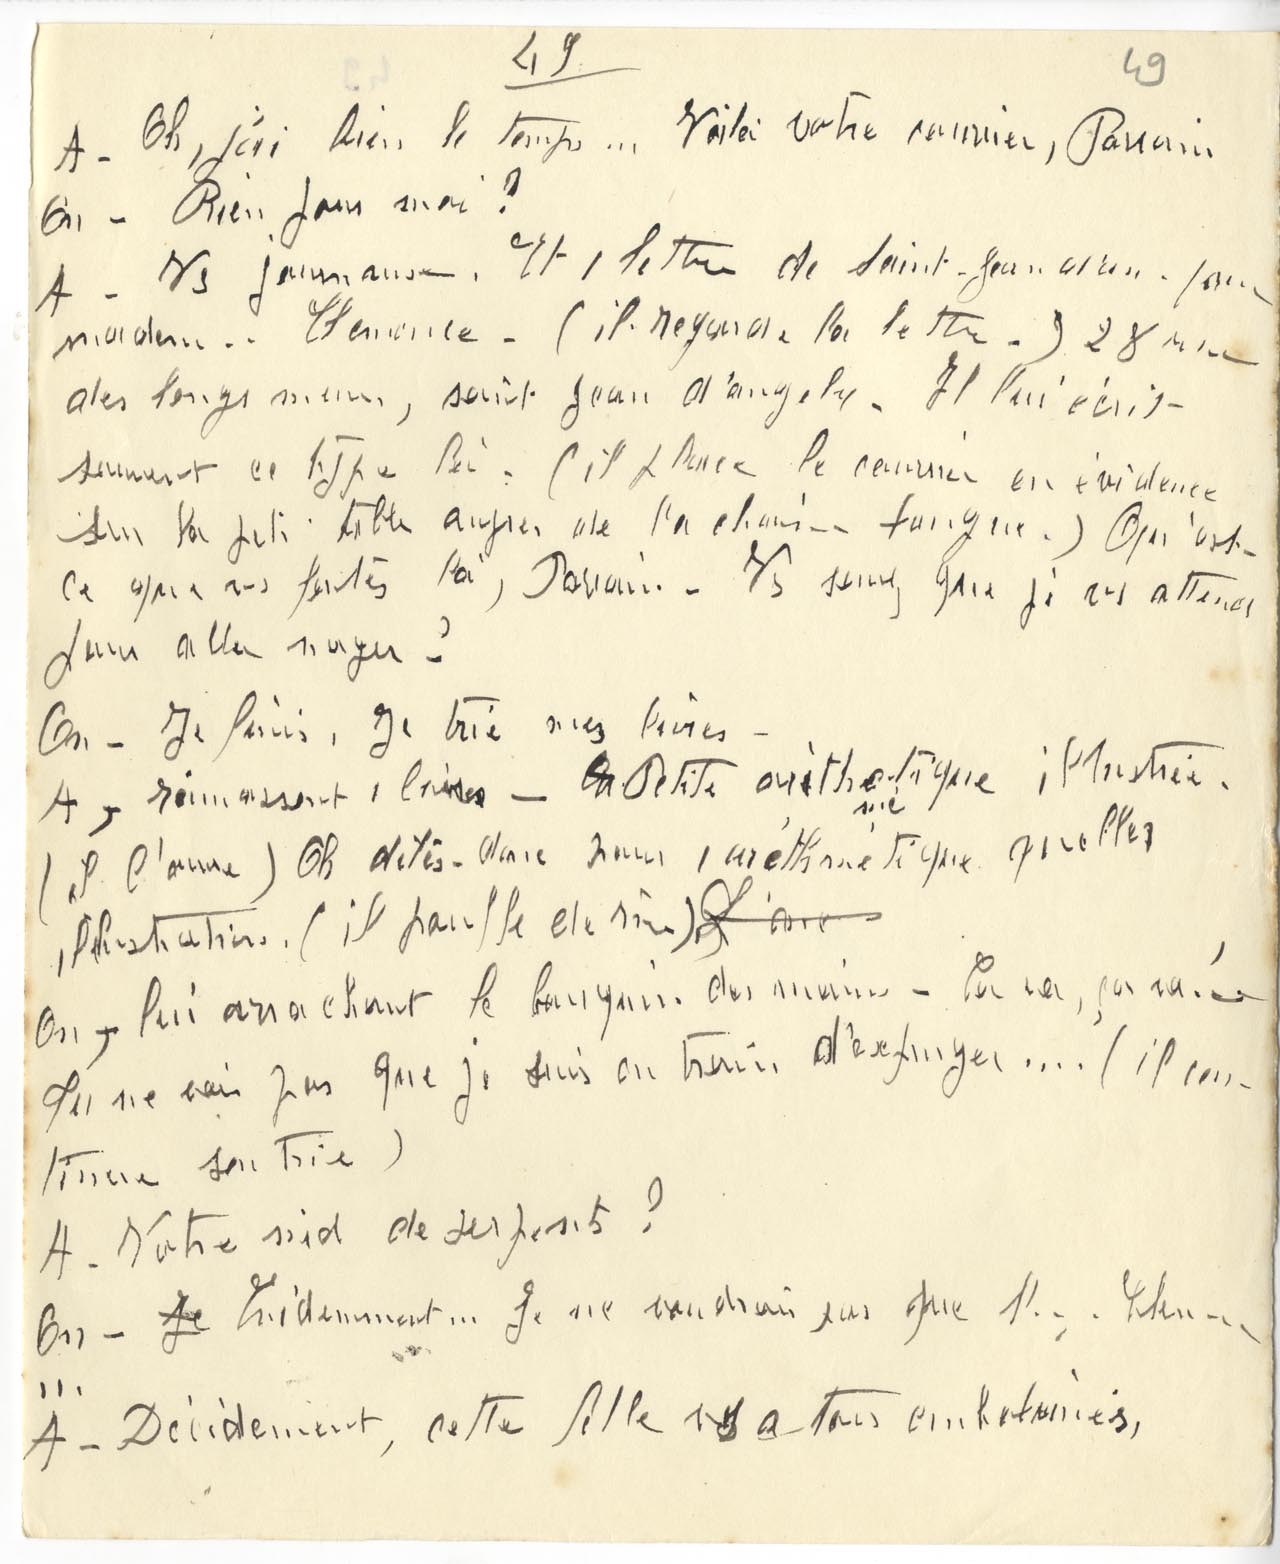 49 49
A - Oh, j'ai bien le temps ... Voilà votre courrier, Parrain
On - Rien pour moi ?
A - Vs journaux. Et 1 lettre de Saint-Jean
madem .. Clemence - (il regarde la lettre -) 28 rue
des longs murs, saint Jean d'angely. Il lui écrit
souvent ce type là. (il place le courrier en évidence
sur la peti. table aupres de la chaise longue.) Qu'est-
ce que vs faites là, Parrain - Vs savez que je vs attends
pour aller nager ?
On - Je finis, Je trie mes livres -
A, ramassant 1 livre - La Petite arithmétique illustrée.
(il l'ouvre) Oh dites-donc pour 1 arithmétique quelles
illustrations. (il pouffe de rire)
On, lui arrachant le bouquin des mains - ça va, ça va...
tu ne vois pas que je suis en train d'expurger .... (il con-
tinue son trie)
A - Votre nid de serpents ?
On - Je Evidemment ... Je ne voudrais pas que
...
A - Décidément, cette fille vs a tous embobinés,